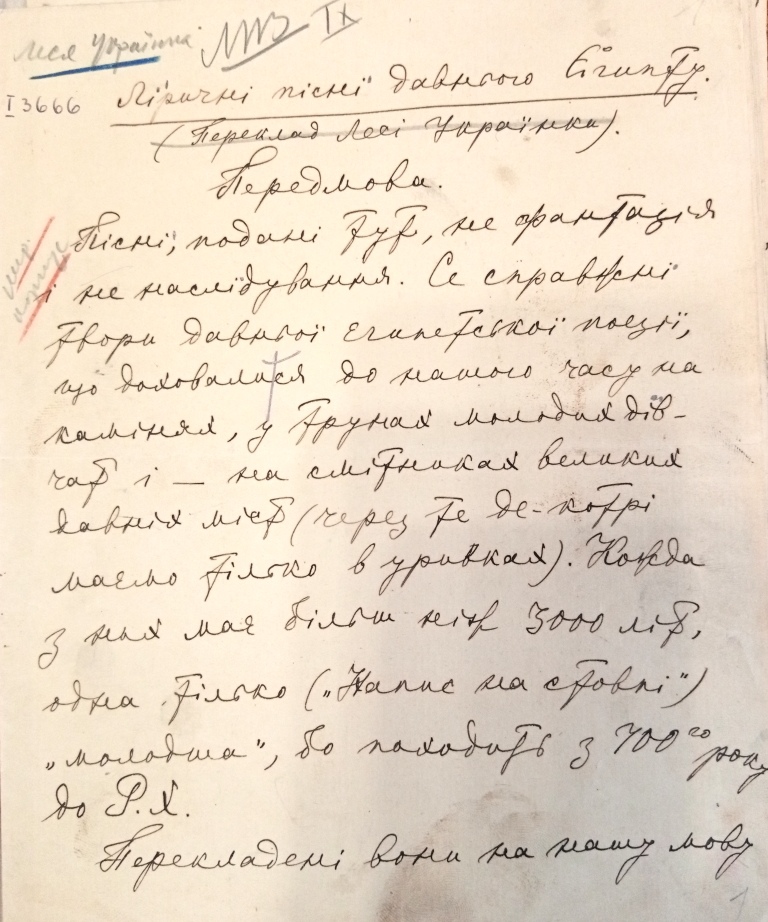 Леся Українка ЛНВ IX
I 3666 Ліричні пісні давнього Єгипту.
(Переклад Лесі Українки).
Передмова.
Пісні, подані тут, не фантазія
і не наслідування. Се справжні
твори давньої египетської поезії,
що доховалися до нашого часу на
каміннях, у трунах молодих дів-
чат і — на смітниках великих
давніх міст (через те де-котрі
маємо тілько в уривках). Кожда
з них має більш ніж 3000 літ,
одна тілько („Напис на стовпі")
„молодша", бо походить з 700го року
до Р.Х.
Перекладені вони на нашу мову
1